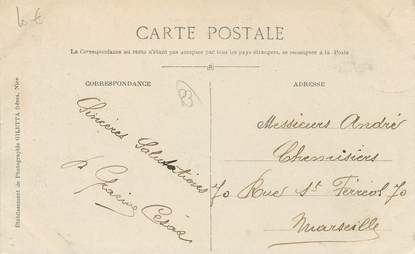 4€
CARTE POSTALE
La Correspondance au recto n'étant pas acceptée par tous les pays étrangers, se renseigner à la Poste
CORRESPONDANCE
ADRESSE
Sincères Salutations
César
Messieurs André
Chemisiers
70 Rue St Ferréol 70
Marseille
Etablissement de Photographie GILETTA frères, Nice